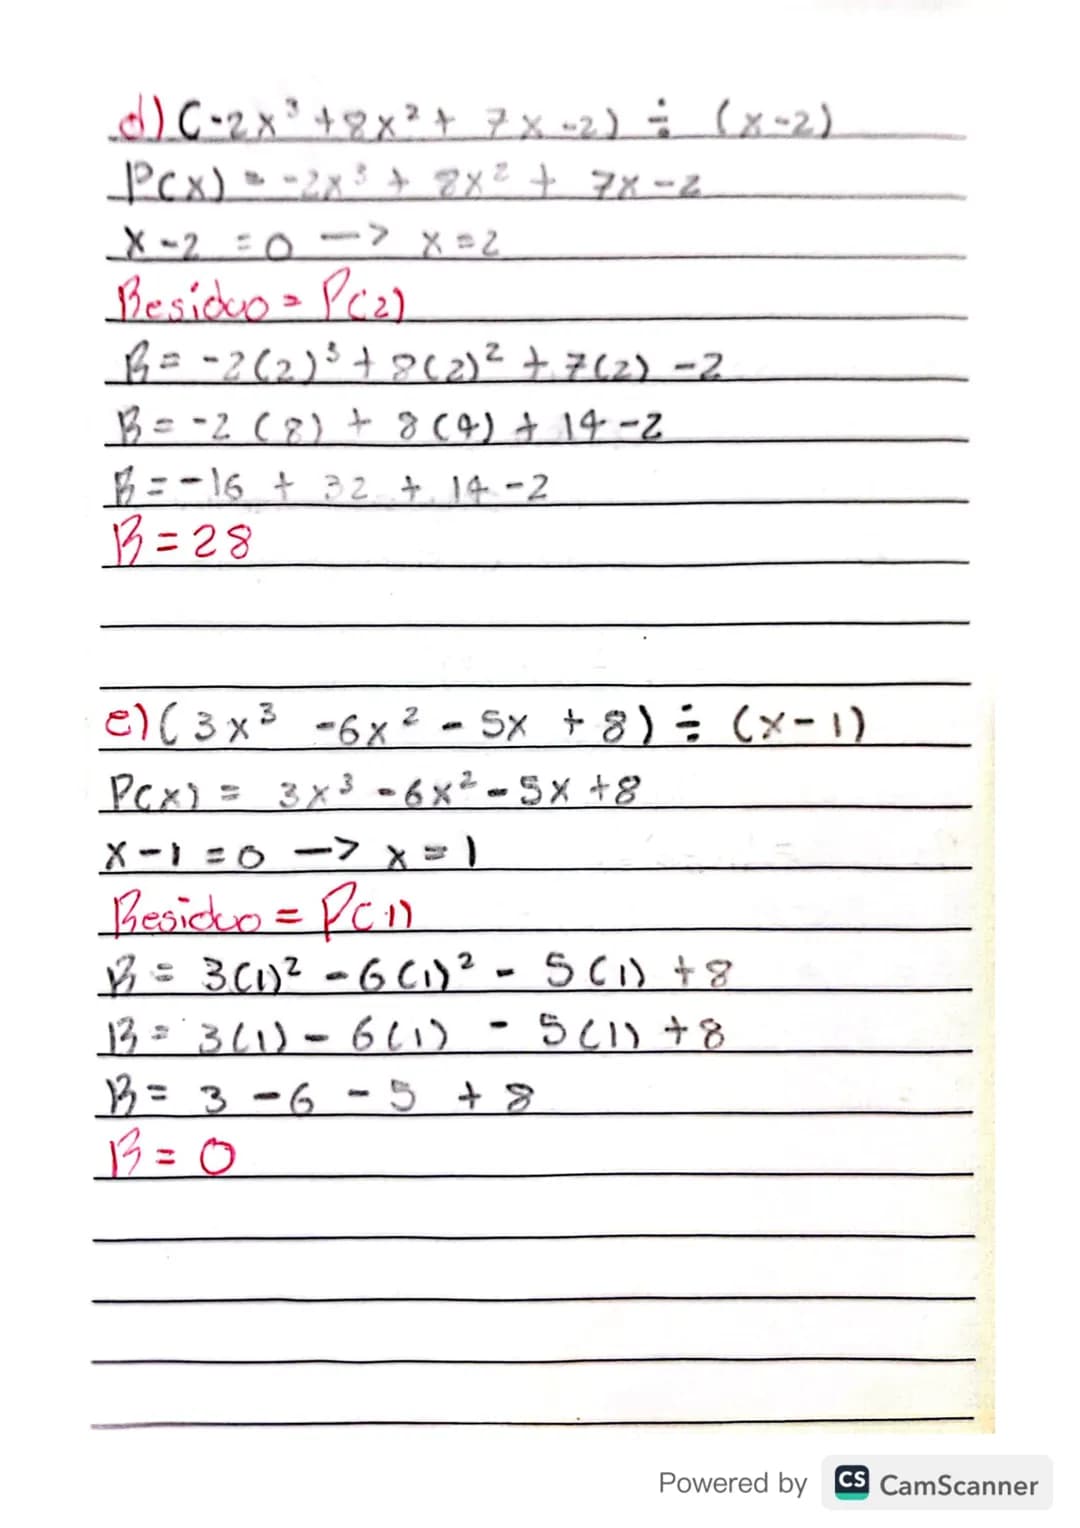 d) (-2x³ + 8x² + 7x - 2) ÷ (x-2)
P(x) = -2x³ + 8x² + 7x - 2
x-2 = 0 -> x = 2
Residuo = P(2)
R = -2(2)³ + 8(2)² + 7(2) - 2
R = -2 (8) + 8 (4) + 14 - 2
R = -16 + 32 + 14 - 2
R = 28
e) (3x³ - 6x² - 5x + 8) ÷ (x-1)
P(x) = 3x³ - 6x² - 5x + 8
x-1 = 0 -> x = 1
Residuo = P(1)
R = 3(1)² - 6(1)² - 5(1) + 8
R = 3(1) - 6(1) - 5(1) + 8
R = 3 - 6 - 5 + 8
R = 0
Powered by CS CamScanner